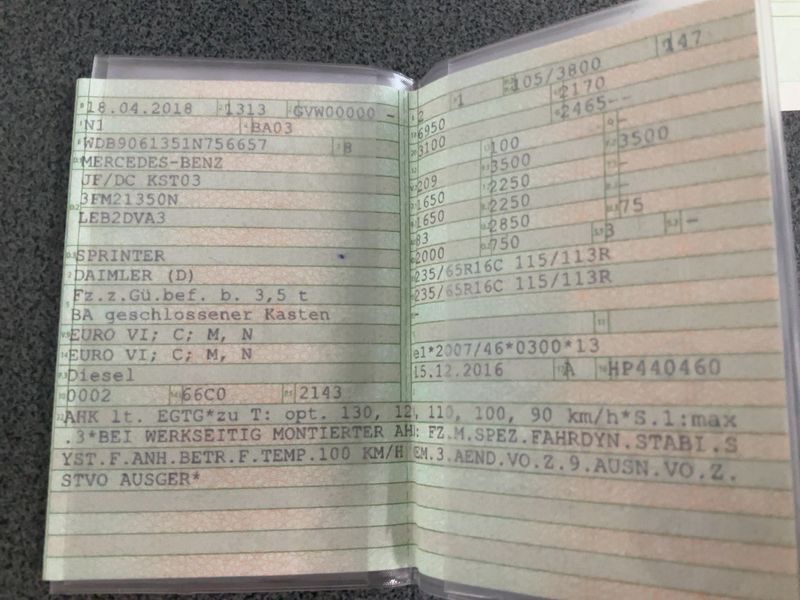 18.04.2018 1313 GVW00000 -
N1 BA03
WDB9061351N756657 8
MERCEDES-BENZ
JF/DC KST03
3FM21350N
LEB2DVA3
SPRINTER
DAIMLER (D)
Fz.z.Gü.bef. b. 3,5 t
BA geschlossener Kasten
EURO VI; C; M, N
EURO VI; C; M, N
Diesel
0002 66C0 2143
2 1 105/3800 147
6950 2170
3100 2465--
- 100 - 3500
209 3500 -
1650 2250 -
1650 2250 75
83 2850
2000 750 3 -
235/65R16C 115/113R
235/65R16C 115/113R
-
e1*2007/46*0300*13
15.12.2016 A HP440460
AHK lt. EGTG*zu T: opt. 130, 110, 100, 90 km/h*S.1:max
.3*BEI WERKSEITIG MONTIERTER FZ.M.SPEZ.FAHRDYN.STABI.S
YST.F.ANH.BETR.F.TEMP.100 KM/H EM.3.AEND.VO.Z.9.AUSN.VO.Z.
STVO AUSGER*